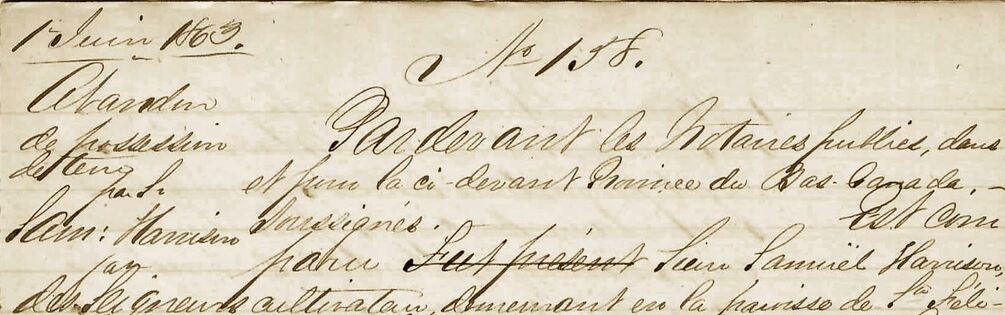 1 Juin 1863.
No 158.
Abandon
de possession
de terre
par Sr
Sam: Harrison
aux
des Seigneurs
Pardevant les Notaires publics, dans
et pour la ci-devant Province du Bas-Canada, -
soussignés. Est com
paru Fut présent Sieur Samuël Harrison,
cultivateur, demeurant en la paroisse de Ste Féli-